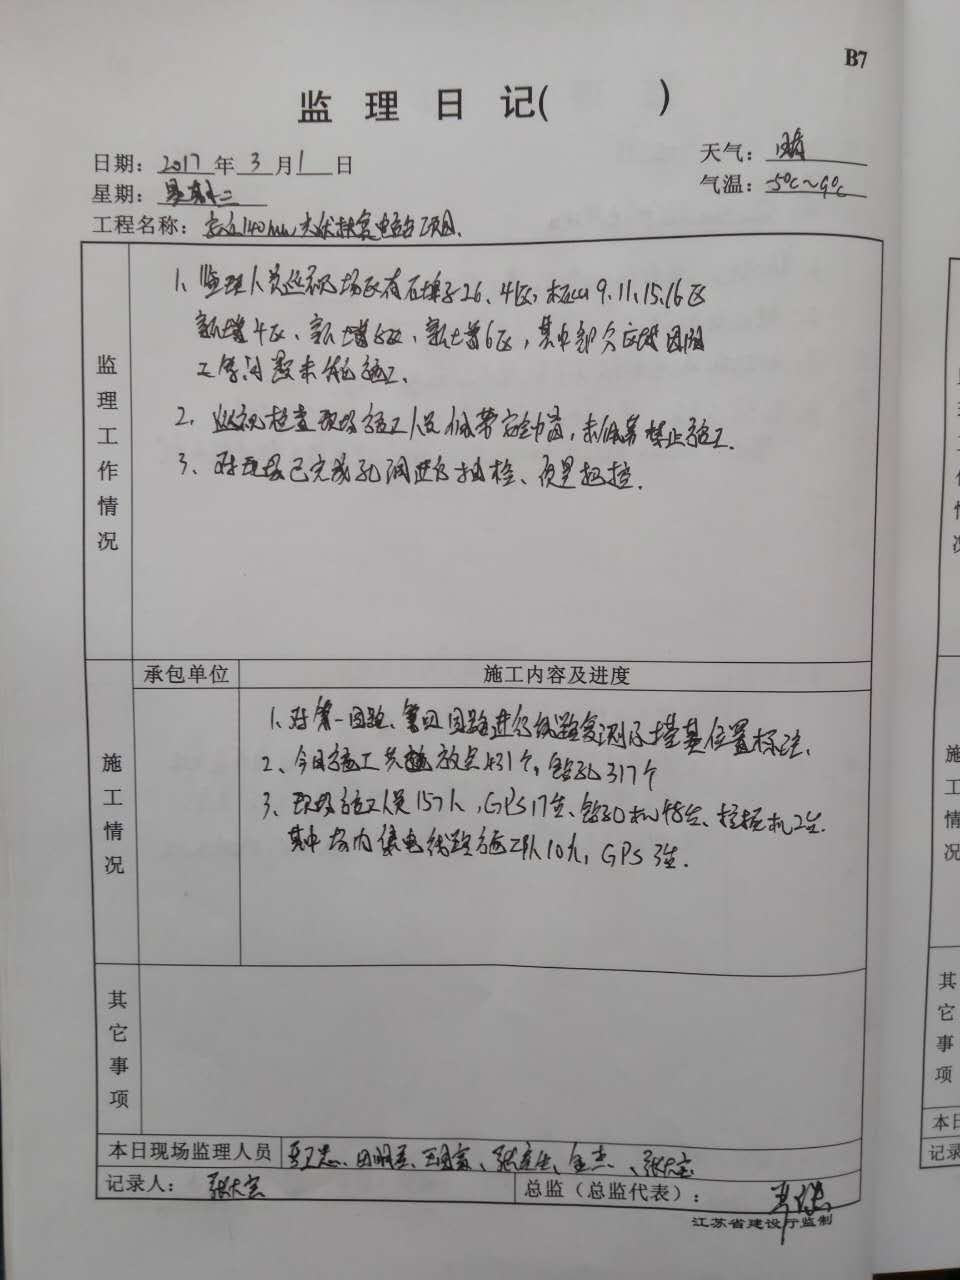 B7
监 理 日 记( )
日期: 2017 年 3 月 1 日
天气: 晴
星期: 星期二
气温: -5℃~9℃
工程名称: 140MW 光伏扶贫电站项目.
监理工作情况
1、监理人员巡视场区有石埠子26、4区, 9、11、15、16区
新增4区、新增5区、新增6区, 其中部分区域因阻
工等问题未能施工.
2、巡视检查现场施工人员佩带安全帽, 未佩带禁止施工.
3、对现场已完成孔洞进行抽检、质量把控.
承包单位
施工内容及进度
施工情况
1、对第一回路、第四回路进行线路复测及塔基位置标注.
2、今日施工共放点431个, 钻孔317个
3、现场施工人员157人, GPS17台、钻孔机48台、挖掘机2台.
其中场内集电线路施工队10人, GPS 3台.
其它事项
本日现场监理人员
记录人:
总监(总监代表):
江苏省建设厅监制
记录